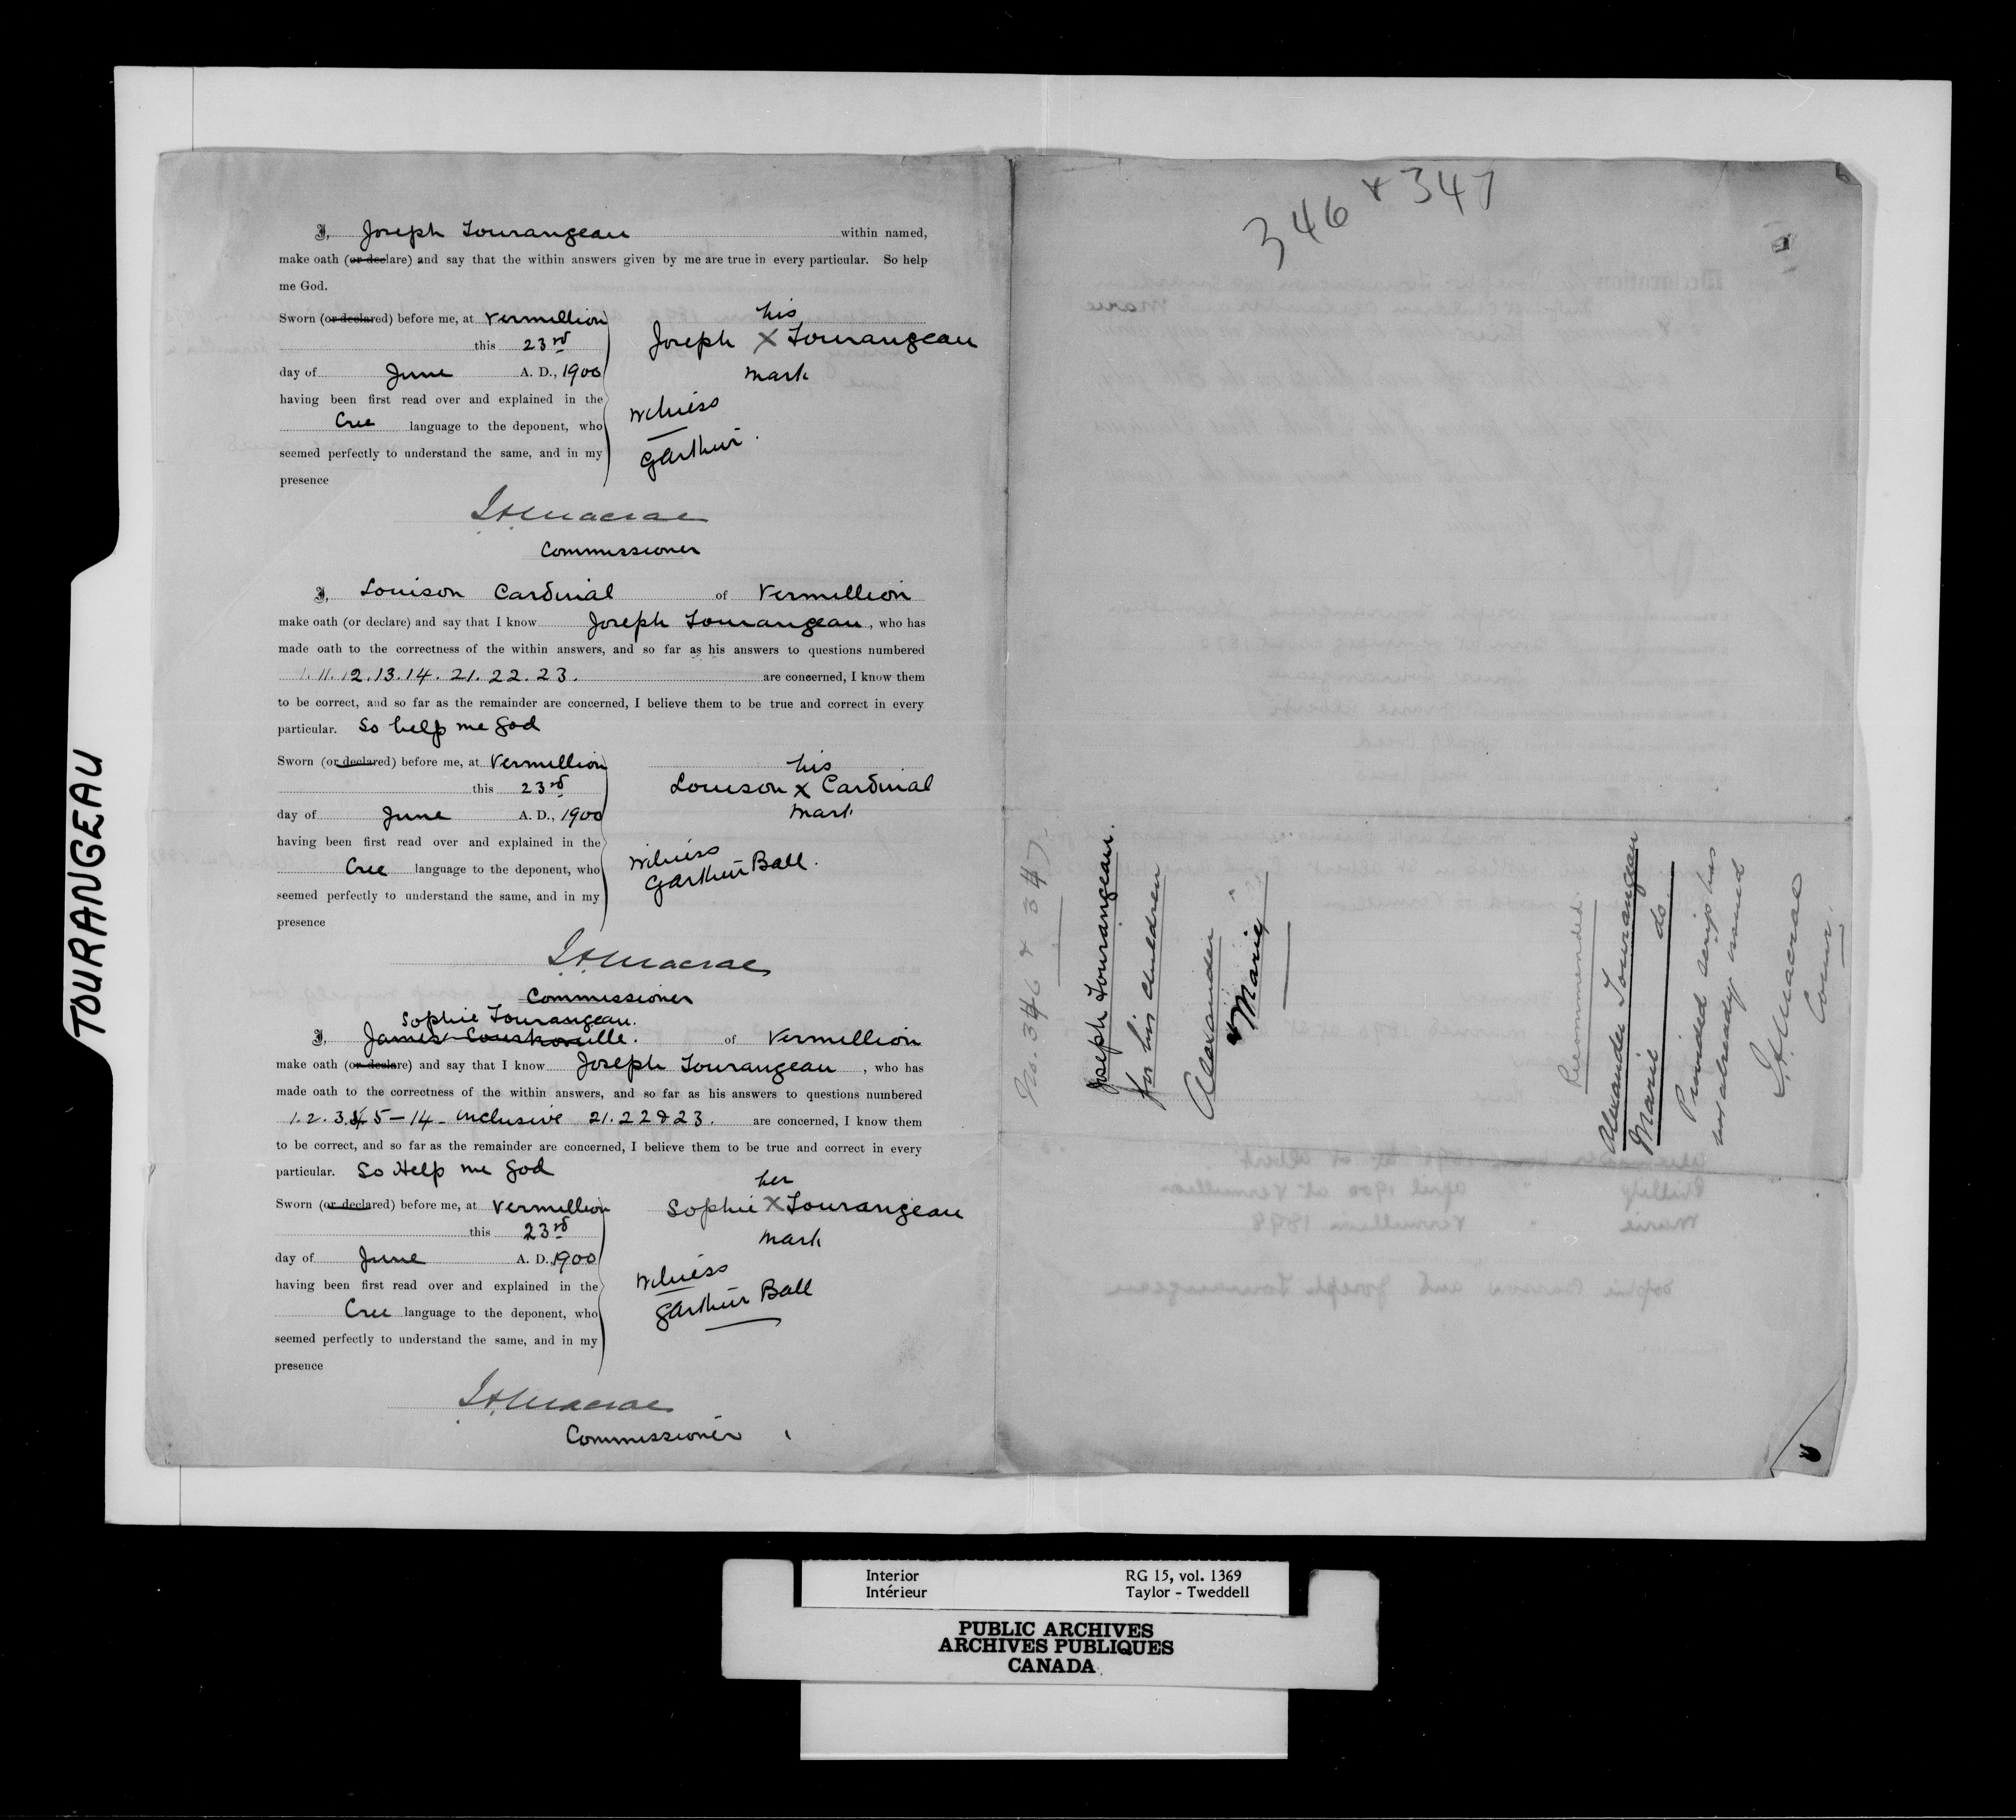 TOURANGEAU
I, Joseph Tourangeau within named,
make oath (or declare) and say that the within answers given by me are true in every particular. So help
me God.
Sworn (or declared) before me, at Vermillion
this 23rd
day of June A. D., 1900
having been first read over and explained in the
Cree language to the deponent, who
seemed perfectly to understand the same, and in my
presence
his
Joseph X Tourangeau
mark
Witness
GArthur
J A Macrae
Commissioner
I, Louison Cardinal of Vermillion
make oath (or declare) and say that I know Joseph Tourangeau, who has
made oath to the correctness of the within answers, and so far as his answers to questions numbered
1. 11. 12. 13. 14. 21. 22. 23. are concerned, I know them
to be correct, and so far as the remainder are concerned, I believe them to be true and correct in every
particular. So help me God
Sworn (or declared) before me, at Vermillion
this 23rd
day of June A. D., 1900
having been first read over and explained in the
Cree language to the deponent, who
seemed perfectly to understand the same, and in my
presence
his
Louison X Cardinal
mark
Witness
GArthur Ball.
J A Macrae
Commissioner
Sophie Tourangeau.
I, James of Vermillion
make oath (or declare) and say that I know Joseph Tourangeau, who has
made oath to the correctness of the within answers, and so far as his answers to questions numbered
1. 2. 3. 5-14 - inclusive 21. 22 & 23. are concerned, I know them
to be correct, and so far as the remainder are concerned, I believe them to be true and correct in every
particular. So Help me God
Sworn (or declared) before me, at Vermillion
this 23rd
day of June A. D. 1900
having been first read over and explained in the
Cree language to the deponent, who
seemed perfectly to understand the same, and in my
presence
her
Sophie X Tourangeau
mark
Witness
GArthur Ball
J A Macrae
Commissioner
346 & 347
No. 346 & 347
Joseph Tourangeau.
for his children
Alexander "
& Marie "
Recommended.
Alexander Tourangeau
Marie do
Provided scrip has
not already issued
J A Macrae
Comr.
Interior
Intérieur
RG 15, vol. 1369
Taylor - Tweddell
PUBLIC ARCHIVES
ARCHIVES PUBLIQUES
CANADA